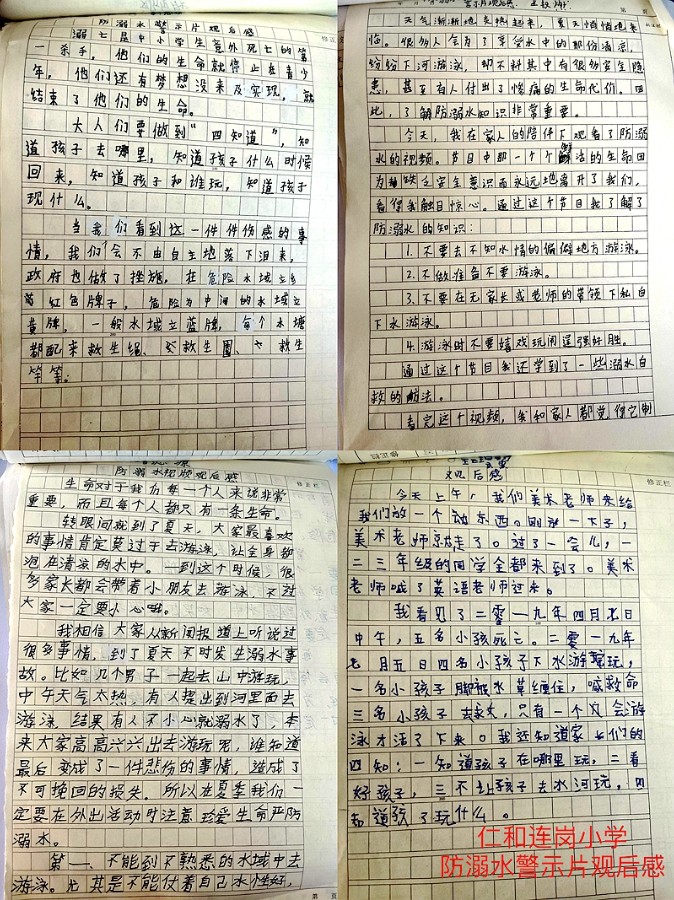 防溺水警示片观后感
溺亡是中小学生意外死亡的第
一杀手，他们的生命就停止在青少
年，他们还有梦想没来及实现，就
结束了他们的生命。
大人们要做到“四知道”，知
道孩子去哪里，知道孩子什么时候
回来，知道孩子和谁玩，知道孩子
现什么。
当我们看到这一件件伤感的事
情，我们会不由自主地落下泪来，
政府也做了挫施，在危险水域立
红色牌子，危险为中间的水域立
黄牌，一般水域立蓝牌，每个水塘
都配来救生绳、救生圈、救生
竿等。
警示片观后感
天气渐渐地炎热起来，夏天悄悄地来
临。很多人会为了享受水中的那份清凉，
纷纷下河游泳，却不料其中有很多安全隐
患，甚至有人付出了惨痛的生命代价。因
此，了解防溺水知识非常重要。
今天，我在家人的陪伴下观看了防溺
水的视频。节目中那一个个鲜活的生命因
为缺乏安全意识而永远地离开了我们，
看得我触目惊心。通过这个节目我了解了
防溺水的知识：
1.不要去不知水情的偏僻地方游泳。
2.不做准备不要游泳。
3.不要在无家长或老师的带领下私自
下水游泳。
4.游泳时不要嬉戏玩闹逞强好胜。
通过这个节目我还学到了一些溺水自
救的方法。
看完这个视频，我和家人都觉得它
防溺水视频观后感
生命对于我为每一个人来说非常
重要，而且每个人都只有一条生命。
转眼间就到了夏天，大家最喜欢
的事情肯定莫过于去游泳，让全身都
泡在清凉的水中。一到这个时候，很
多家长都会带着小朋友去游泳，不过
大家一定要小心哦。
我相信大家从新闻报道上听说过
很多事情，到了夏天不时发生溺水事
故。比如几个男子一起去山中游玩，
中午天气太热，有人提出到河里面去
游泳，结果有人不小心就溺水了，本
来大家高高兴兴出去游玩呢，谁知道
最后变成了一件悲伤的事情，造成了
不可挽回的损失。所以在夏季我们一
定要在外出活动时注意珍爱生命严防
溺水。
第一、不能到不熟悉的水域中去
游泳。尤其是不能仗着自己水性好，
观后感
今天上午，我们美术老师来给
我们放一个动东西。刚放一下子，
美术老师就走了。过了一会儿，一
二三年级的同学全都来到了。美术
老师喊了英语老师过来。
我看见了二零一九年四月七日
中午，五名小孩死亡。二零一九年
七月五日四名小孩子下水游玩，
一名小孩子脚被水草缠住，喊救命
三名小孩子去救，只有一个人会游
泳才活了下来。我还知道家长们的
四知：一知道孩子在哪里玩，二看
好孩子，三不让孩子去水河玩，四
知道孩子玩什么。
仁和连岗小学
防溺水警示片观后感